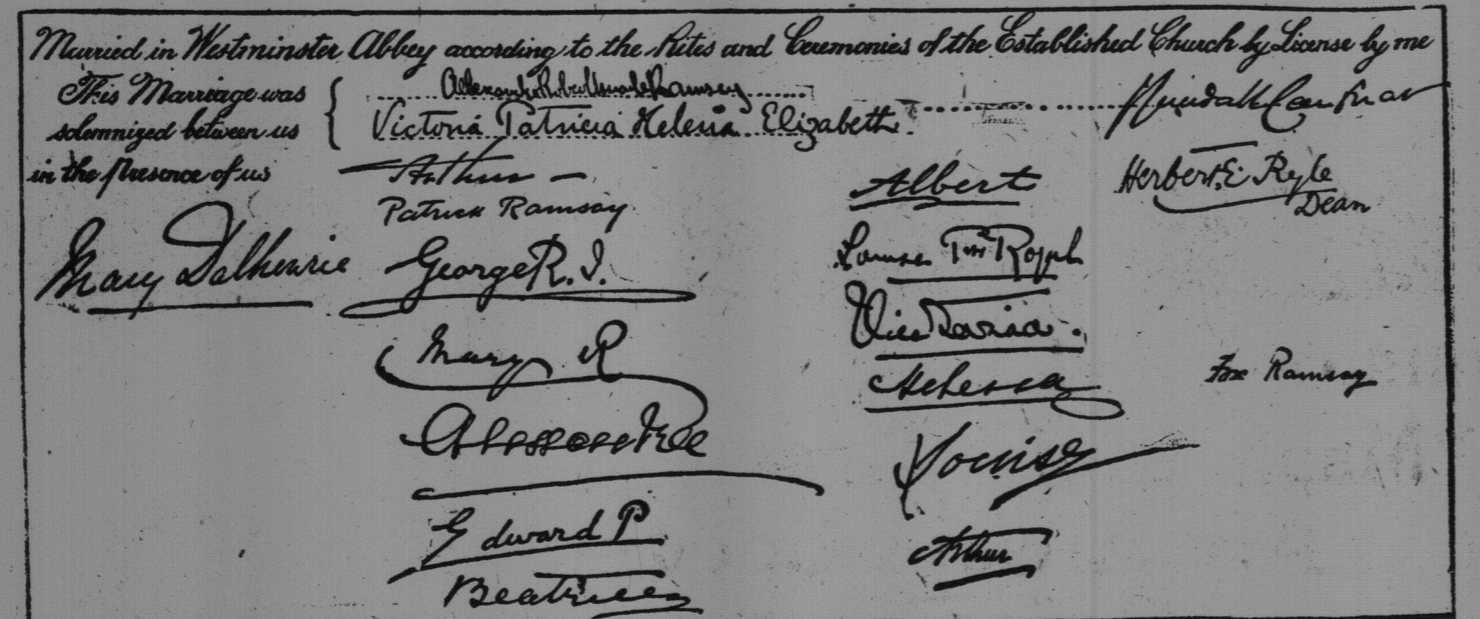 Married in Westminster Abbey according to the Rites and Ceremonies of the Established Church by License by me
This Marriage was
solemnized between us
in the presence of us
Alexander Robert Maule Ramsay
Victoria Patricia Helena Elizabeth.
Randall Cantuar
Arthur
Patrick Ramsay
Mary Dalhousie
George R. I.
Mary R
Alexandra
Edward P
Beatrice
Albert
Louise
Victoria.
Helena
Louise
Arthur
Herbert E. Ryle
Dean
Ramsay